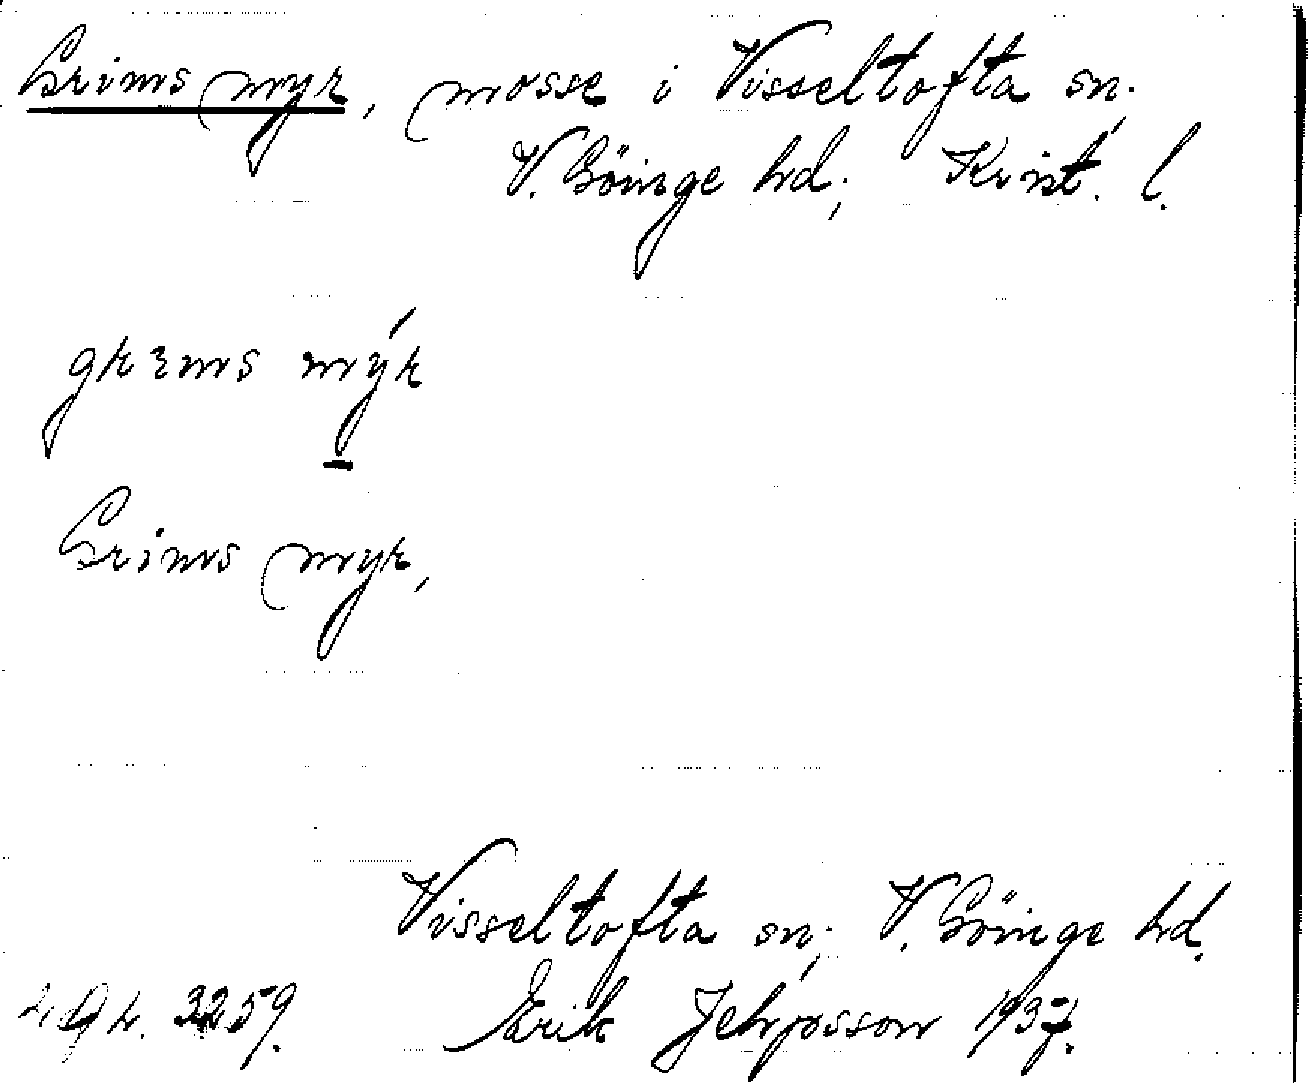 Grims myr, mosse i Visseltofta sn.,
V. Göinge hd, Krist. l.
grims mýr
Grims myr,
Visseltofta sn., V. Göinge hd.
3259. Erik Jeppsson 1937.